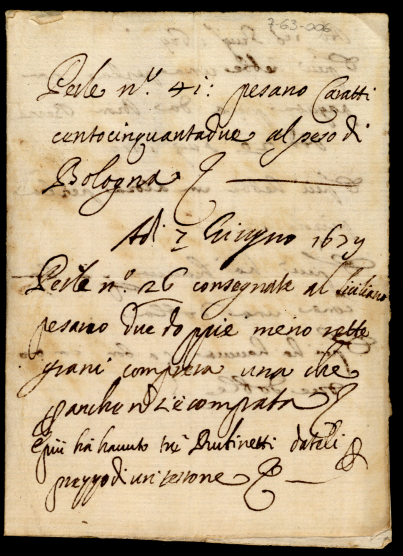 7-63-006
Perle n.º 41: pesano Caratti
centocinquantadue al peso di
Bologna
Adi 7 Giugno 1679
Perle n.º 26 consegnate al Siciliano
pesano due doppie meno sette
grani compresa una che
anche n s'è comprata
e più hà hauuto trè Rubinetti datoli
prezzo di un testone